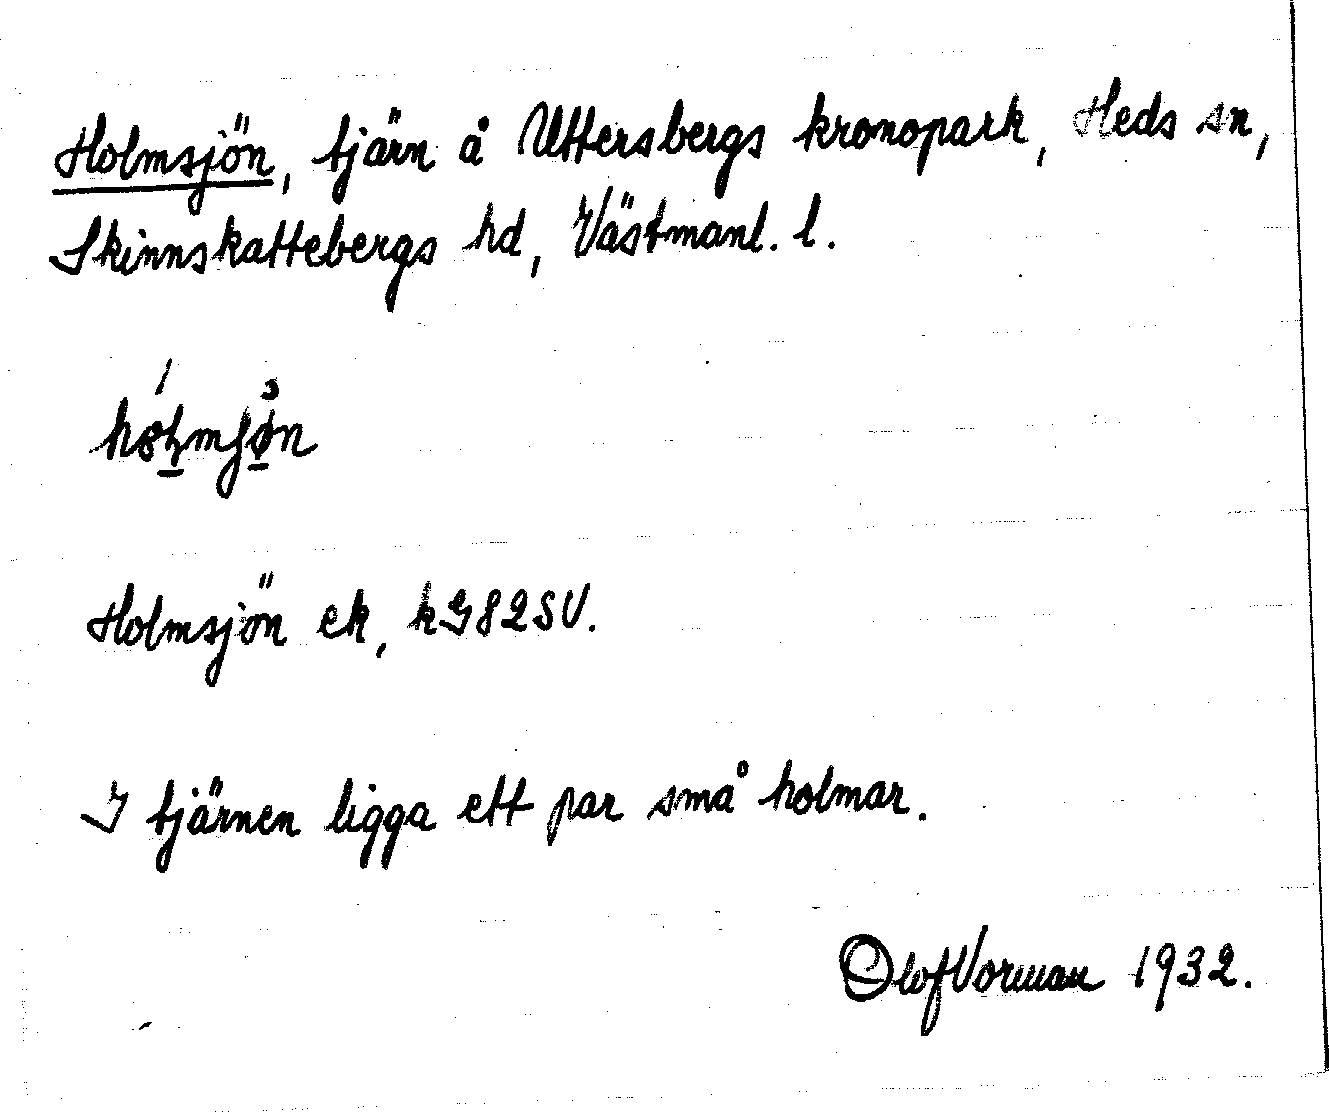 Holmsjön, tjärn å Uttersbergs kronopark, Heds sn,
Skinnskattebergs hd, Västmanl. l.
Holmsjön ek, kG82SV.
I tjärnen ligga ett par små holmar.
Olof Vorman 1932.